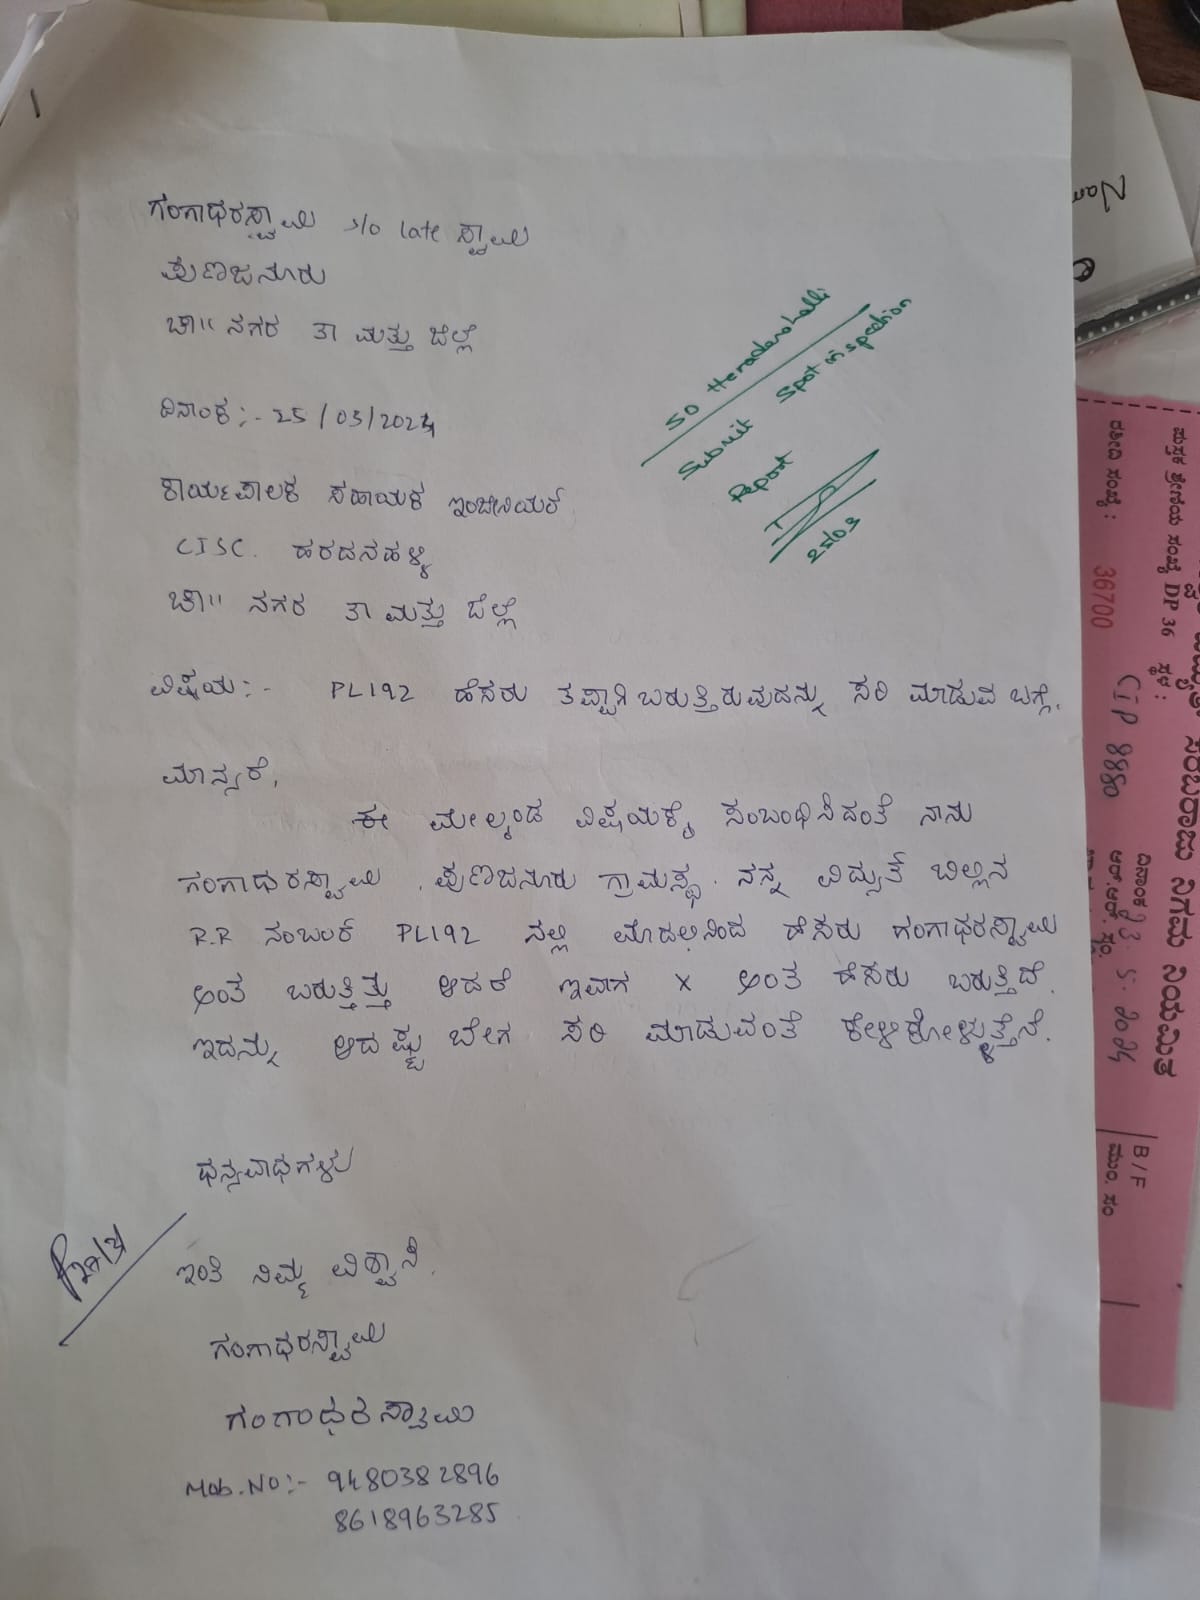 ಗಂಗಾಧರಸ್ವಾಮಿ s/o late ಸ್ವಾಮಿ
ಪುಣಜನೂರು
ಚಾ|| ನಗರ ತಾ ಮತ್ತು ಜಿಲ್ಲೆ
ದಿನಾಂಕ :- 25/03/2024
ಕಾರ್ಯಪಾಲಕ ಸಹಾಯಕ ಇಂಜಿನಿಯರ್
CISC. ಹರದನಹಳ್ಳಿ
ಚಾ|| ನಗರ ತಾ ಮತ್ತು ಜಿಲ್ಲೆ
SO Haradanahalli
Submit Spot inspection
Report
25/03
ವಿಷಯ :- PL192 ಹೆಸರು ತಪ್ಪಾಗಿ ಬರುತ್ತಿರುವುದನ್ನು ಸರಿ ಮಾಡುವ ಬಗ್ಗೆ.
ಮಾನ್ಯರೆ,
ಈ ಮೇಲ್ಕಂಡ ವಿಷಯಕ್ಕೆ ಸಂಬಂಧಿಸಿದಂತೆ ನಾನು
ಗಂಗಾಧರಸ್ವಾಮಿ, ಪುಣಜನೂರು ಗ್ರಾಮಸ್ಥ. ನನ್ನ ವಿದ್ಯುತ್ ಬಿಲ್ಲಿನ
R.R ನಂಬರ್ PL192 ನಲ್ಲಿ ಮೊದಲಿನಿಂದ ಹೆಸರು ಗಂಗಾಧರಸ್ವಾಮಿ
ಅಂತ ಬರುತ್ತಿತ್ತು ಆದರೆ ಇವಾಗ X ಅಂತ ಹೆಸರು ಬರುತ್ತಿದೆ.
ಇದನ್ನು ಆದಷ್ಟು ಬೇಗ ಸರಿ ಮಾಡುವಂತೆ ಕೇಳಿಕೋಳ್ಳುತ್ತೆನೆ.
ಧನ್ಯವಾಧಗಳು
ಇಂತಿ ನಿಮ್ಮ ವಿಶ್ವಾಸಿ.
ಗಂಗಾಧರಸ್ವಾಮಿ
ಗಂಗಾಧರಸ್ವಾಮಿ
Mob.No:- 9480382896
8618963285
ಸರಬರಾಜು ನಿಗಮ ನಿಯಮಿತ
DP 36
ರಶೀದಿ ಸಂಖ್ಯೆ : 36700
ದಿನಾಂಕ
CJP 8880
B/F
ಮುಂ. ಸಂ